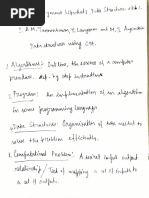 A.M. Tannenbaum, Y. Langsam and M. J. Augenstein
Data structures using C++.
Algorithms: Outline, the essence of a computer
procedure, step-by step instructions
Program: An implementation of an algorithm
in some programming language
Data Structures: Organization of data needed to
solve the problem effectively.
1. Computational Problem: A
input output
relationship / Task of mapping a set of inputs to
a set of outputs.